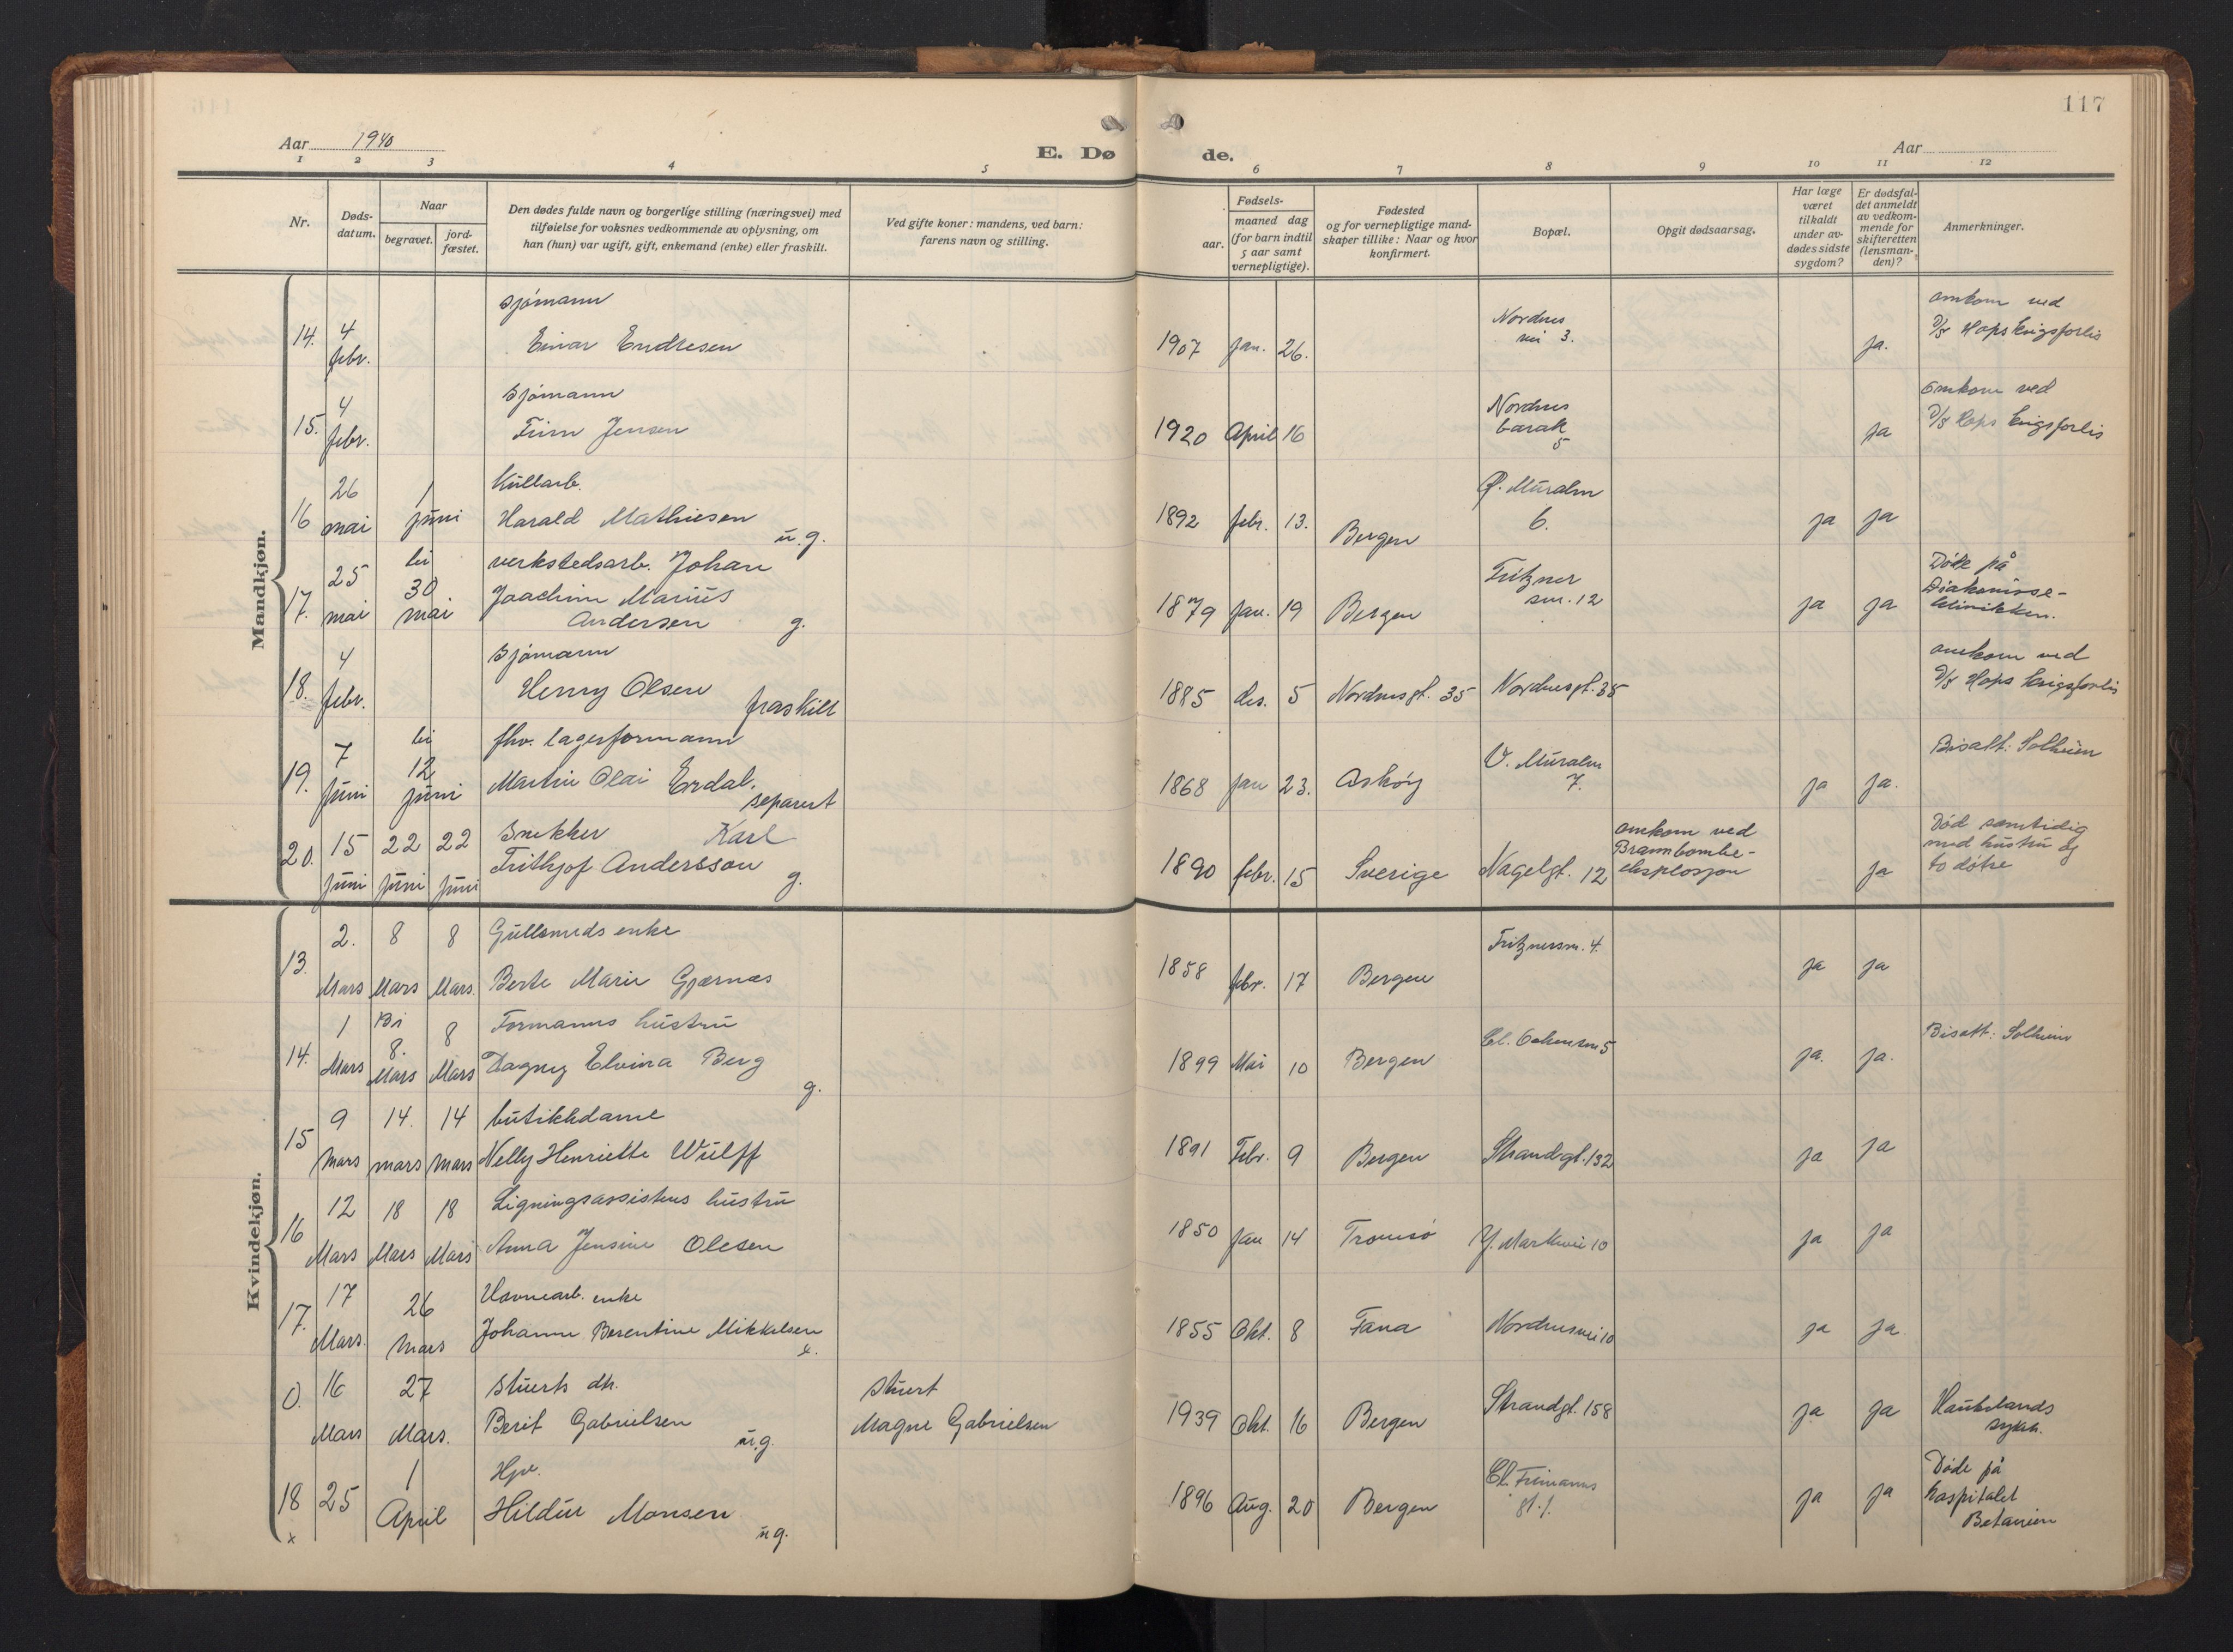 117
Aar 1940
E. Dø
de.
Aar
1 2 3 4 5 6 7 8 9 10 11 12
Nr.
Døds-
datum.
Naar
begravet.
jord-
fæstet.
Den dødes fulde navn og borgerlige stilling (næringsvei) med
tilføielse for voksnes vedkommende av oplysning, om
han (hun) var ugift, gift, enkemand (enke) eller fraskilt.
Ved gifte koner: mandens, ved barn:
farens navn og stilling.
Fødsels-
aar.
maaned dag
(for barn indtil
5 aar samt
vernepligtige).
Fødested
og for vernepligtige mand-
skaper tillike: Naar og hvor
konfirmert.
Bopæl.
Opgit dødsaarsag.
Har læge
været
tilkaldt
under av-
dødes sidste
sygdom?
Er dødsfal-
det anmeldt
av vedkom-
mende for
skifteretten
(lensman-
den)?
Anmerkninger.
Mandkjøn.
14. 4 febr.
sjømann
Einar Endresen
1907 jan. 26.
Nordnes
vei 3.
ja.
omkom ved
D/S Hops krigsforlis
15. 4 febr.
sjømann
Finn Jensen
1920 April 16
Nordnes
barak
5
ja
omkom ved
D/S Hops krigsforlis
16 26 mai 1 juni
Kullarb.
Harald Mathiesen
u.g.
1892 febr. 13.
Bergen
Ø. Muralm
6.
ja ja
17. 25 mai bi 30 mai
verkstedsarb. Johan
Joachim Marius
Andersen g.
1879 jan. 19 Bergen
Fritzner
sm. 12
ja ja
Døde på
Diakonisse-
klinikken.
18. 4 febr.
sjømann
Henry Olsen
fraskilt
1885 des. 5 Nordnesgt. 35 Nordnesgt. 35
omkom ved
D/S Hops krigsforlis
19. 7 juni bi 12 juni
fhv. lagerformann
Martin Olai Erdal.
separert
1868 jan 23. Askøy
V. Muralm
7.
ja ja.
Bisatt: Solheim
20. 15 juni 22 juni 22 juni
Snekker Karl
Frithjof Andersson
g.
1890 febr. 15 Sverige Nagelgt. 12
omkom ved
Brannbombe-
eksplosjon
ja
Død samtidig
med hustru og
to døtre
Kvindekjøn.
13. 2. Mars 8 Mars 8 Mars.
Gullsmeds enke
Berte Marie Gjærnæs
1858 febr. 17 Bergen
Fritznersm. 4.
ja ja
14. 1 Mars Bi 8. Mars 8 Mars
Formanns hustru
Dagny Elvina Berg
g.
1899 Mai 10 Bergen
ja. ja.
Bisatt: Solheim
15 9 Mars 14. mars 14 mars
butikkdame
Nelly Henriette Wulff
1891 Febr. 9 Bergen Strandgt. 132
ja ja
16 12 Mars 18 Mars 18 Mars
Ligningsassistens hustru
Anna Jensine Olesen
1850 Jan 14 Tromsø Y. Markvei 10
ja ja
17. 17 Mars. 26 Mars
Havnearb. enke
Johanne Berentine Mikkelsen
e.
1855 Okt. 8 Fana Nordnesvei 10
ja ja.
0. 16 Mars 27 Mars.
Stuerts dtr.
Berit Gabrielsen
u.g.
stuert
Magne Gabrielsen
1939 Okt. 16 Bergen Strandgt. 158
ja ja
Haukelands
sykeh.
18 x 25 1 April
Hpe.
Hildur Monsen
u.g.
1896 Aug. 20 Bergen
Cl. Frimanns
gt. 1.
ja ja
Døde på
hospitalet
Betanien